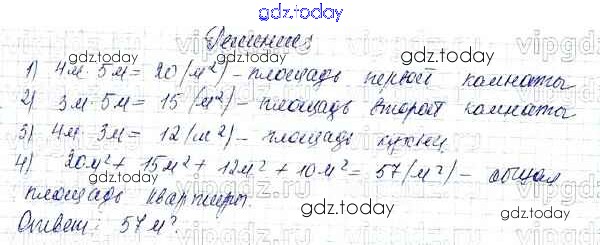 gdz.today
Решение:
1) 4м · 5м = 20 (м²) – площадь первой комнаты
2) 3м · 5м = 15 (м²) – площадь второй комнаты
3) 4м · 3м = 12 (м²) – площадь кухни
4) 20м² + 15м² + 12м² + 10м² = 57 (м²) – общая
площадь квартиры.
Ответ: 57м².
gdz.today
gdz.today
gdz.today
gdz.today
gdz.today
gdz.today